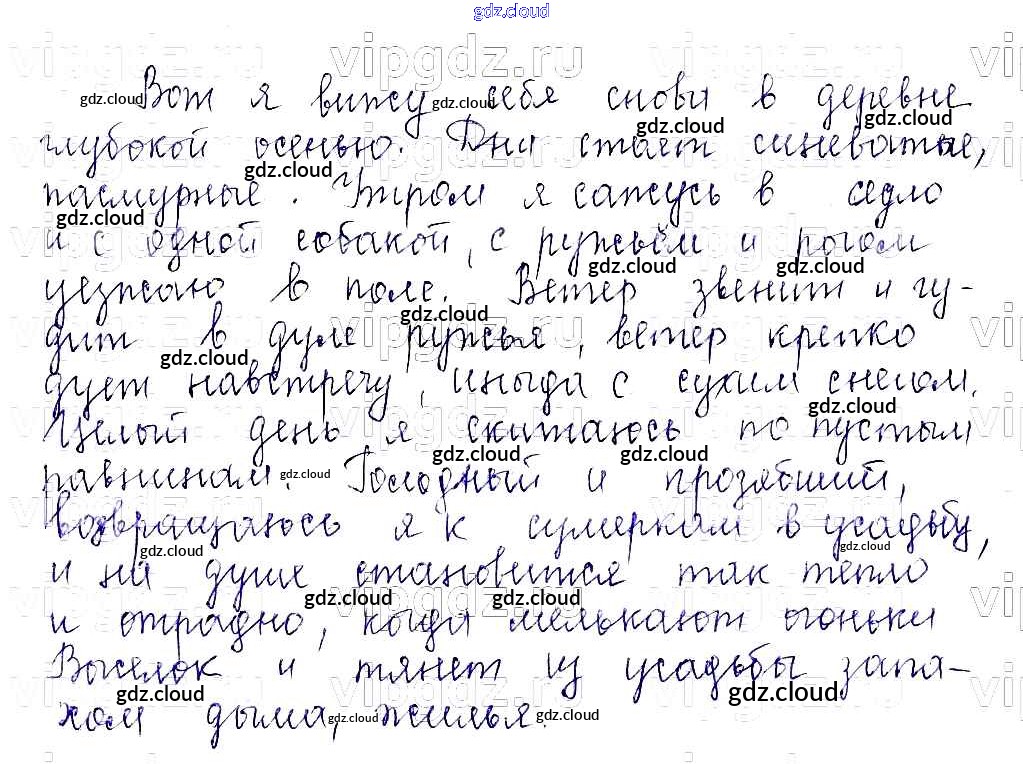 gdz.cloud
Вот я вижу себя снова в деревне
глубокой осенью. Дни стоят синеватые,
пасмурные. Утром я сажусь в седло
и с одной собакой, с ружьём и рогом
уезжаю в поле. Ветер звенит и гу-
дит в дуле ружья, ветер крепко
дует навстречу, иногда с сухим снегом.
Целый день я скитаюсь по пустым
равнинам. Голодный и прозябший,
возвращаюсь я к сумеркам в усадьбу,
и на душе становится так тепло
и отрадно, когда мелькают огоньки
Выселок и тянет из усадьбы запа-
хом дыма, жилья.